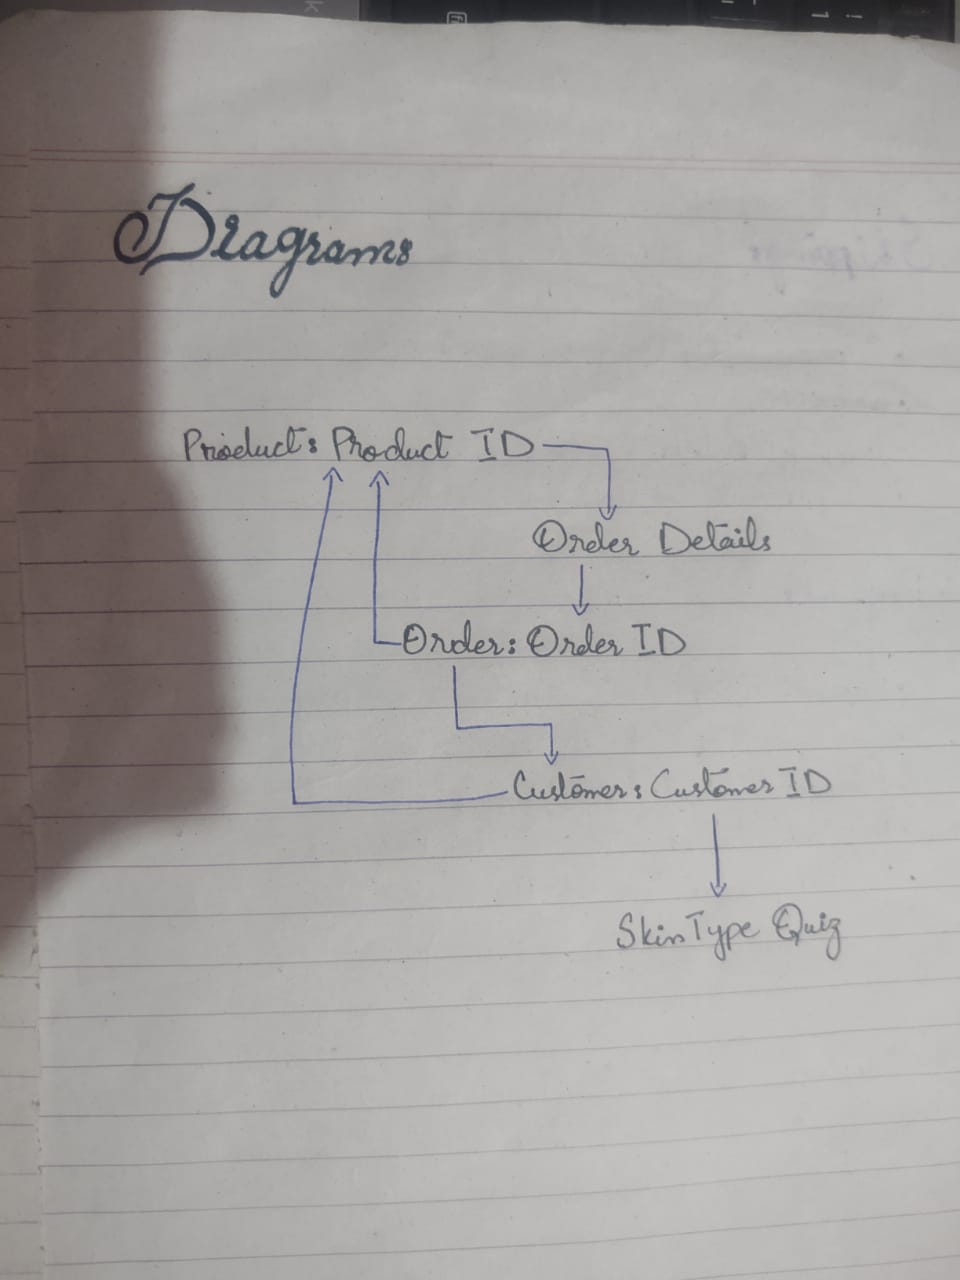 Diagrams
Product: Product ID
Order Details
Order: Order ID
Customer: Customer ID
SkinType Quiz